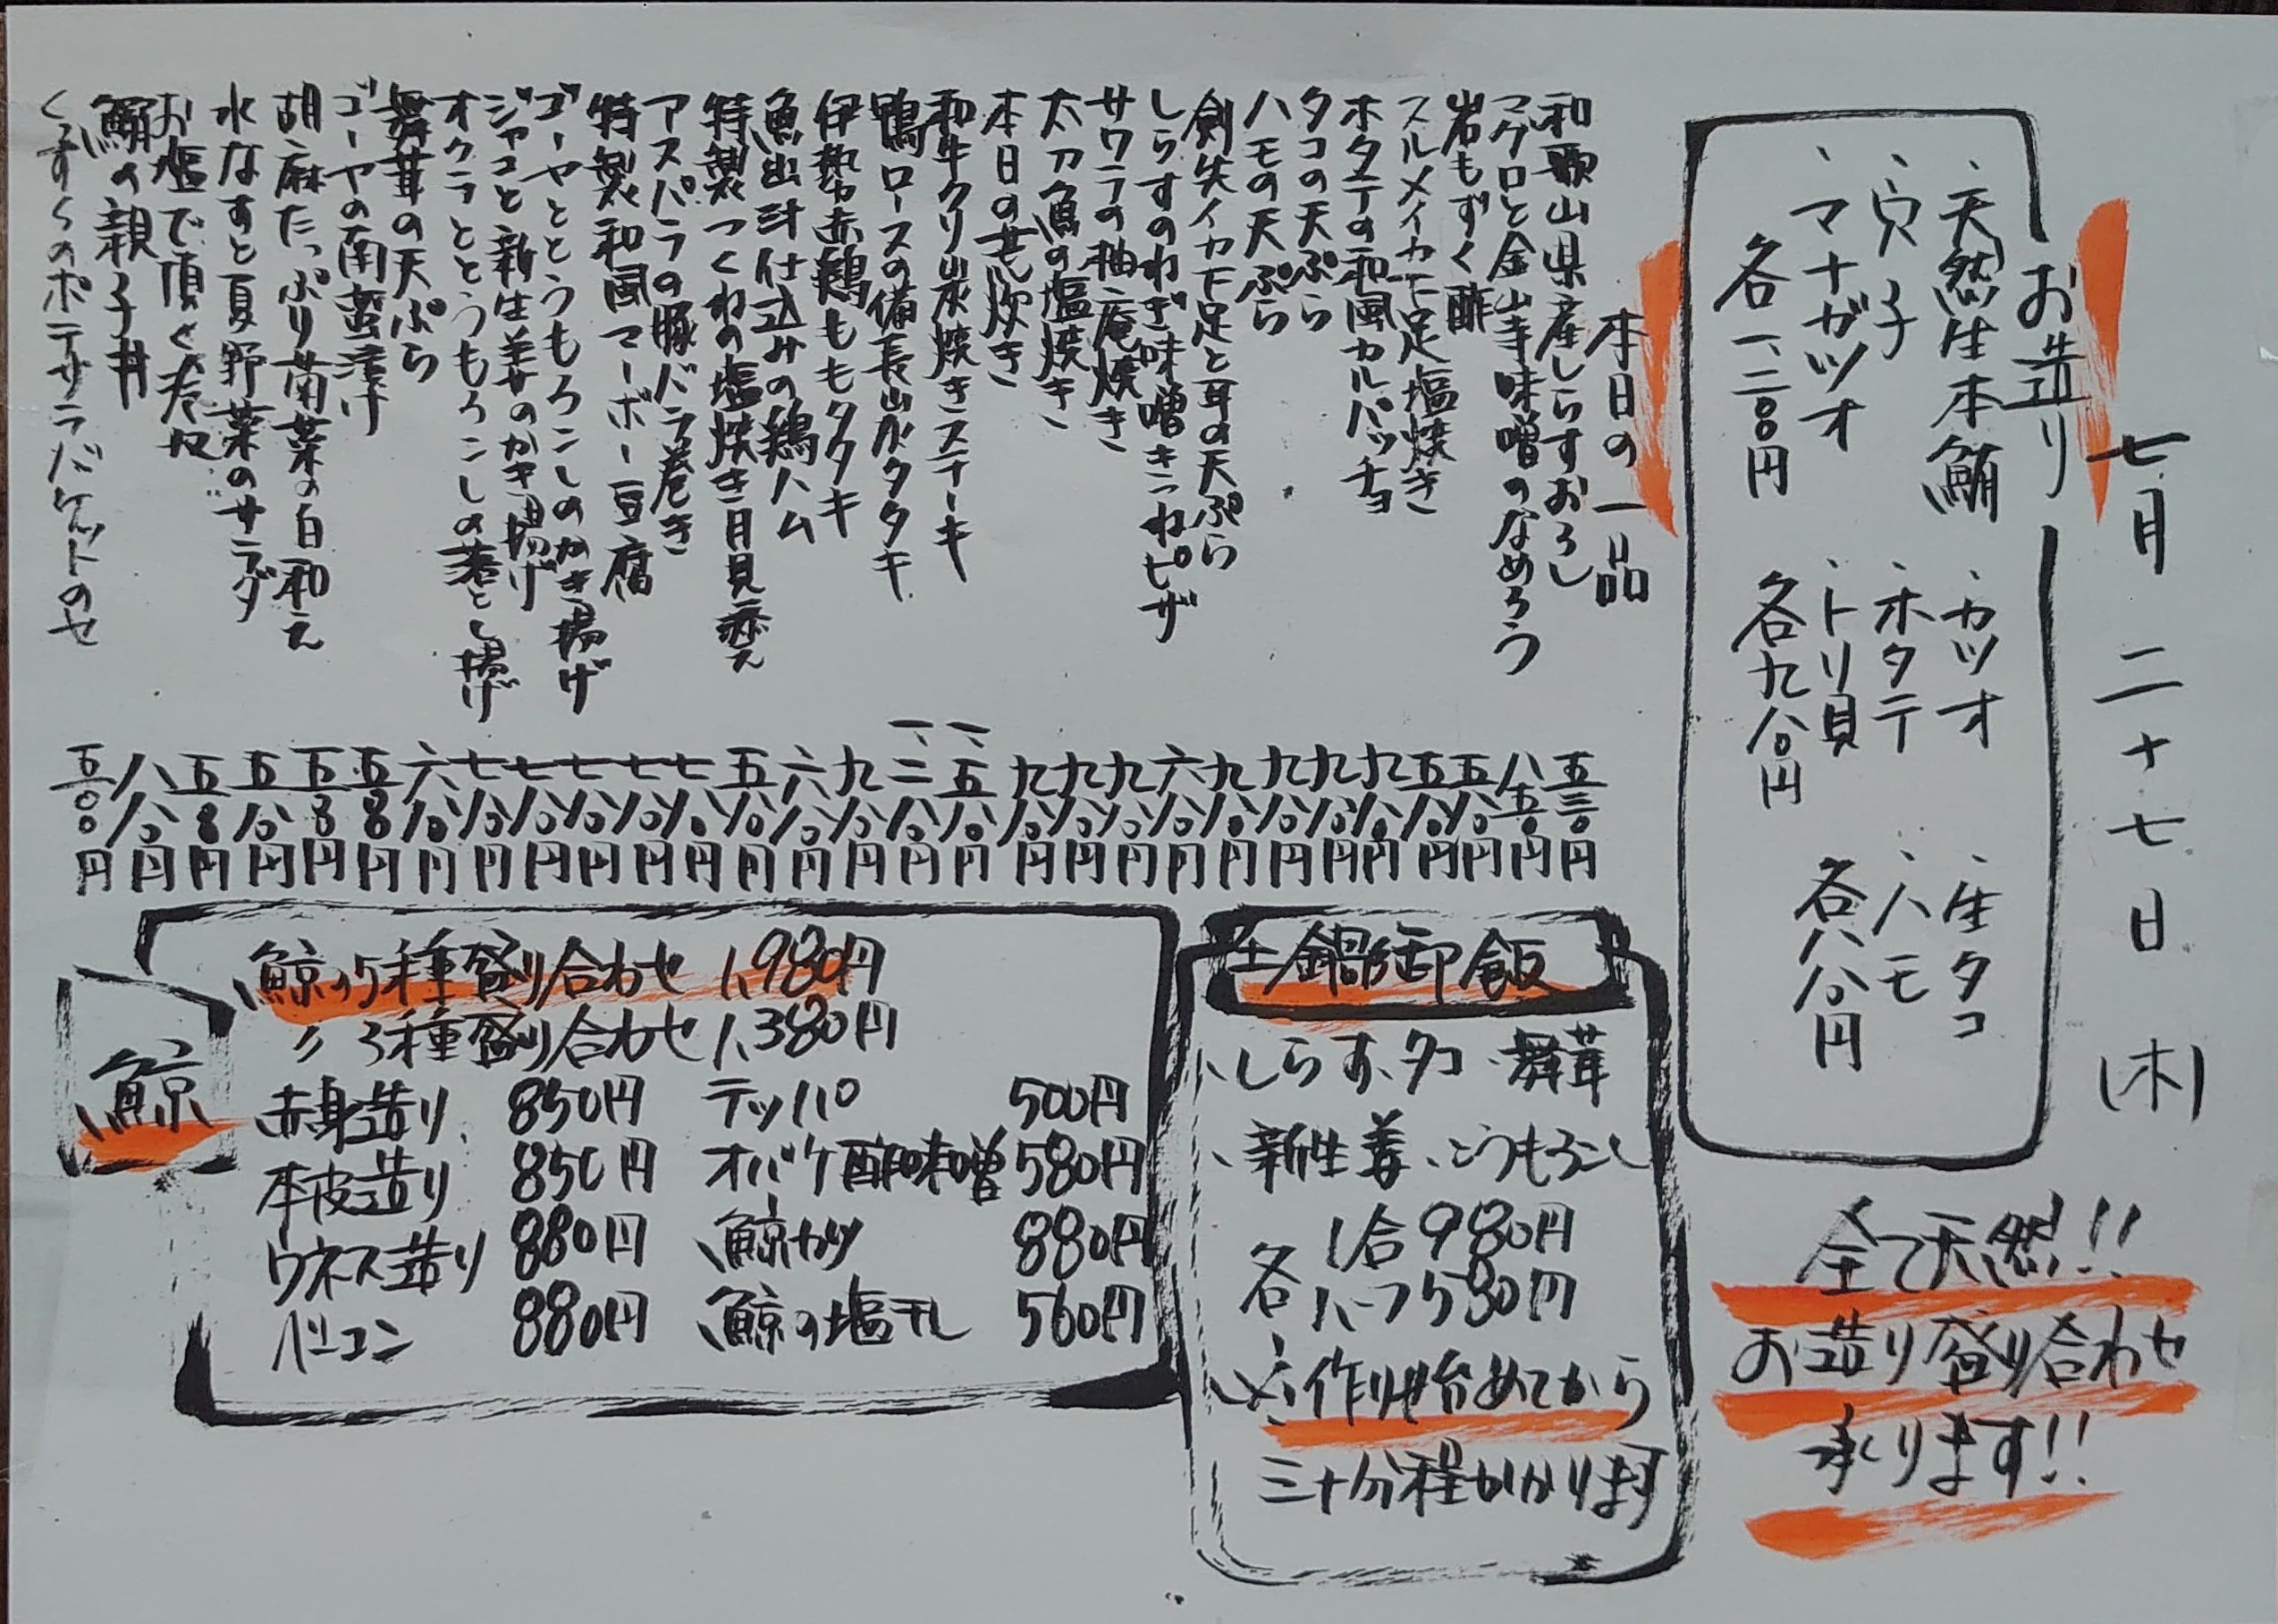 七月二十七日(木)
お造り
、天然生本鮪
、穴子
、マナガツオ
各一、二〇〇円
、カツオ
、ホタテ
、トリ貝
各九八〇円
、生タコ
、ハモ
各八八〇円
全て天然!!
お造り盛り合わせ
承ります!!
本日の一品
和歌山県産しらすおろし 五三〇円
マグロと金山寺味噌のなめろう 八五〇円
岩もずく酢 五八〇円
スルメイカ下足塩焼き 五八〇円
ホタテの和風カルパッチョ 九八〇円
タコの天ぷら 九八〇円
ハモの天ぷら 九八〇円
剣先イカ下足と耳の天ぷら 九八〇円
しらすのねぎ味噌きつねピザ 六八〇円
サワラの柚庵焼き 九八〇円
太刀魚の塩焼き 九八〇円
本日の荒炊き 九八〇円
和牛クリ炭焼きステーキ 一、五八〇円
鴨ロースの備長炭タタキ 一、二八〇円
伊勢赤鶏ももタタキ 九八〇円
魚出汁仕込みの鶏ハム 六八〇円
特製つくねの塩焼き月見添え 五八〇円
アスパラの豚バラ巻き 七八〇円
特製和風マーボー豆腐 七八〇円
ゴーヤととうもろこしのかき揚げ 七八〇円
ジャコと新生姜のかき揚げ 七八〇円
オクラととうもろこしの落とし揚げ 七八〇円
舞茸の天ぷら 六八〇円
ゴーヤの南蛮漬け 五〇〇円
胡麻たっぷり青菜の白和え 五〇〇円
水なすと夏野菜のサラダ 五八〇円
お塩で頂く冷奴 五〇〇円
鯛の親子丼 八八〇円
くずくずのポテサラバケットのせ 五〇〇円
土鍋御飯
、しらす、タコ、舞茸
、新生姜、とうもろこし
各 1合 980円
ハーフ 580円
※作り始めてから
三十分程かかります
鯨
鯨の5種盛り合わせ 1,980円
〃 3種盛り合わせ 1,380円
赤身造り 850円 テッパ 500円
本皮造り 850円 オバケ酢味噌 580円
ウネス造り 880円 鯨カツ 880円
ベーコン 880円 鯨の塩干し 560円